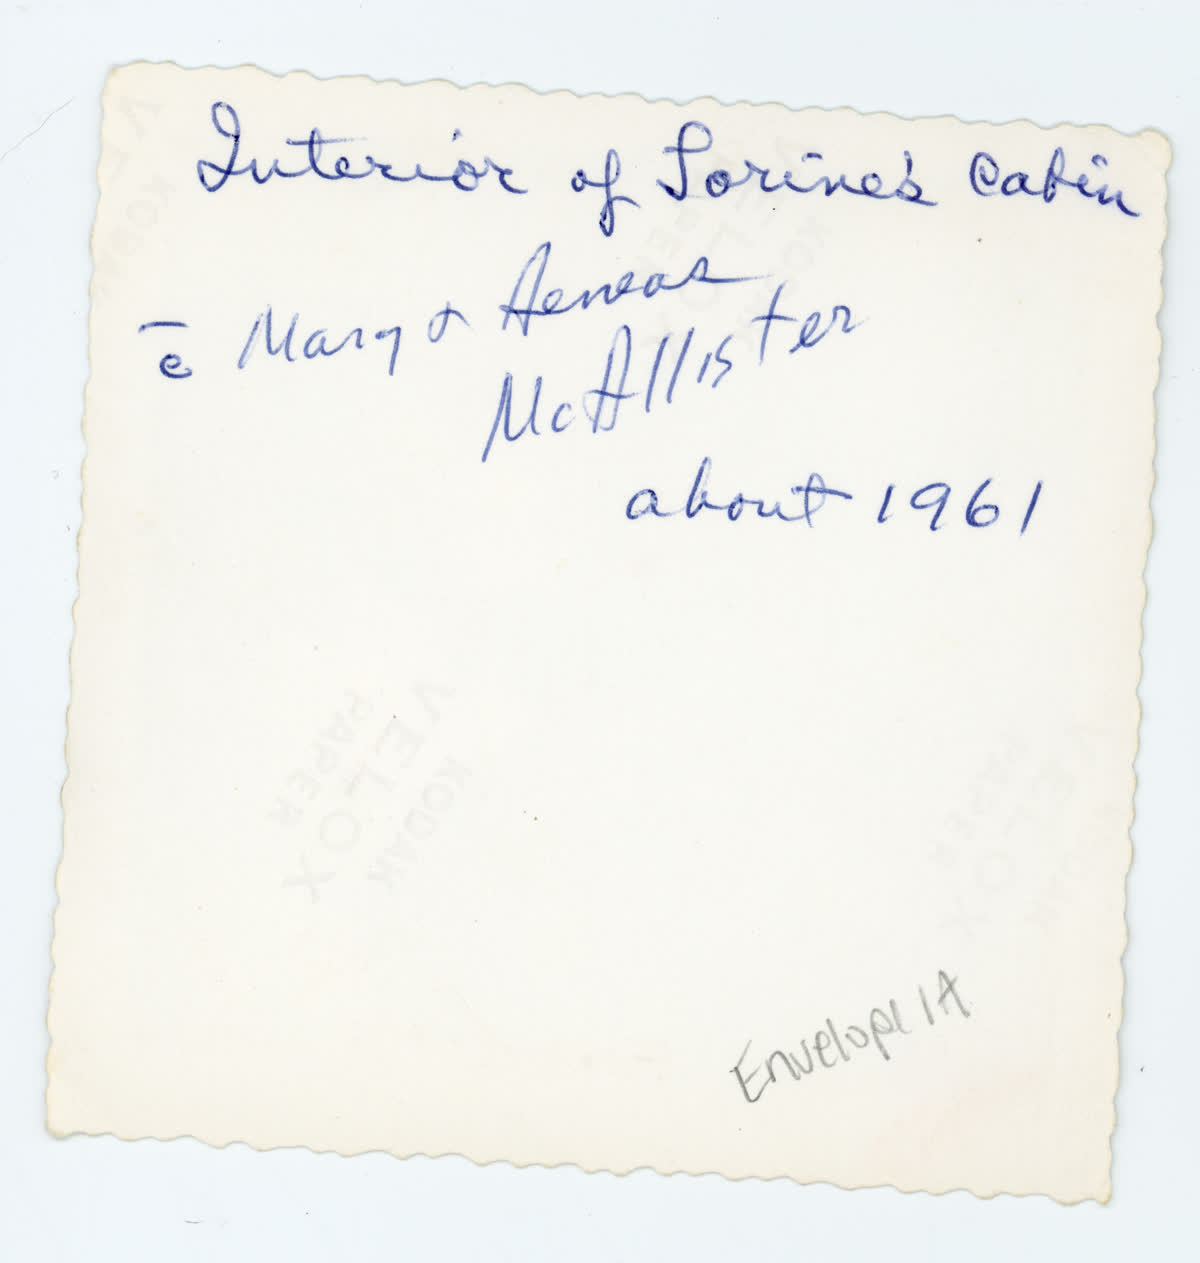 Interior of Lorine's Cabin
c̄ Mary & Aeneas
McAllister
about 1961
VELOX
KODAK
VELOX
PAPER
KODAK
VELOX
PAPER
KODAK
VELOX
PAPER
KODAK
Envelope 1A